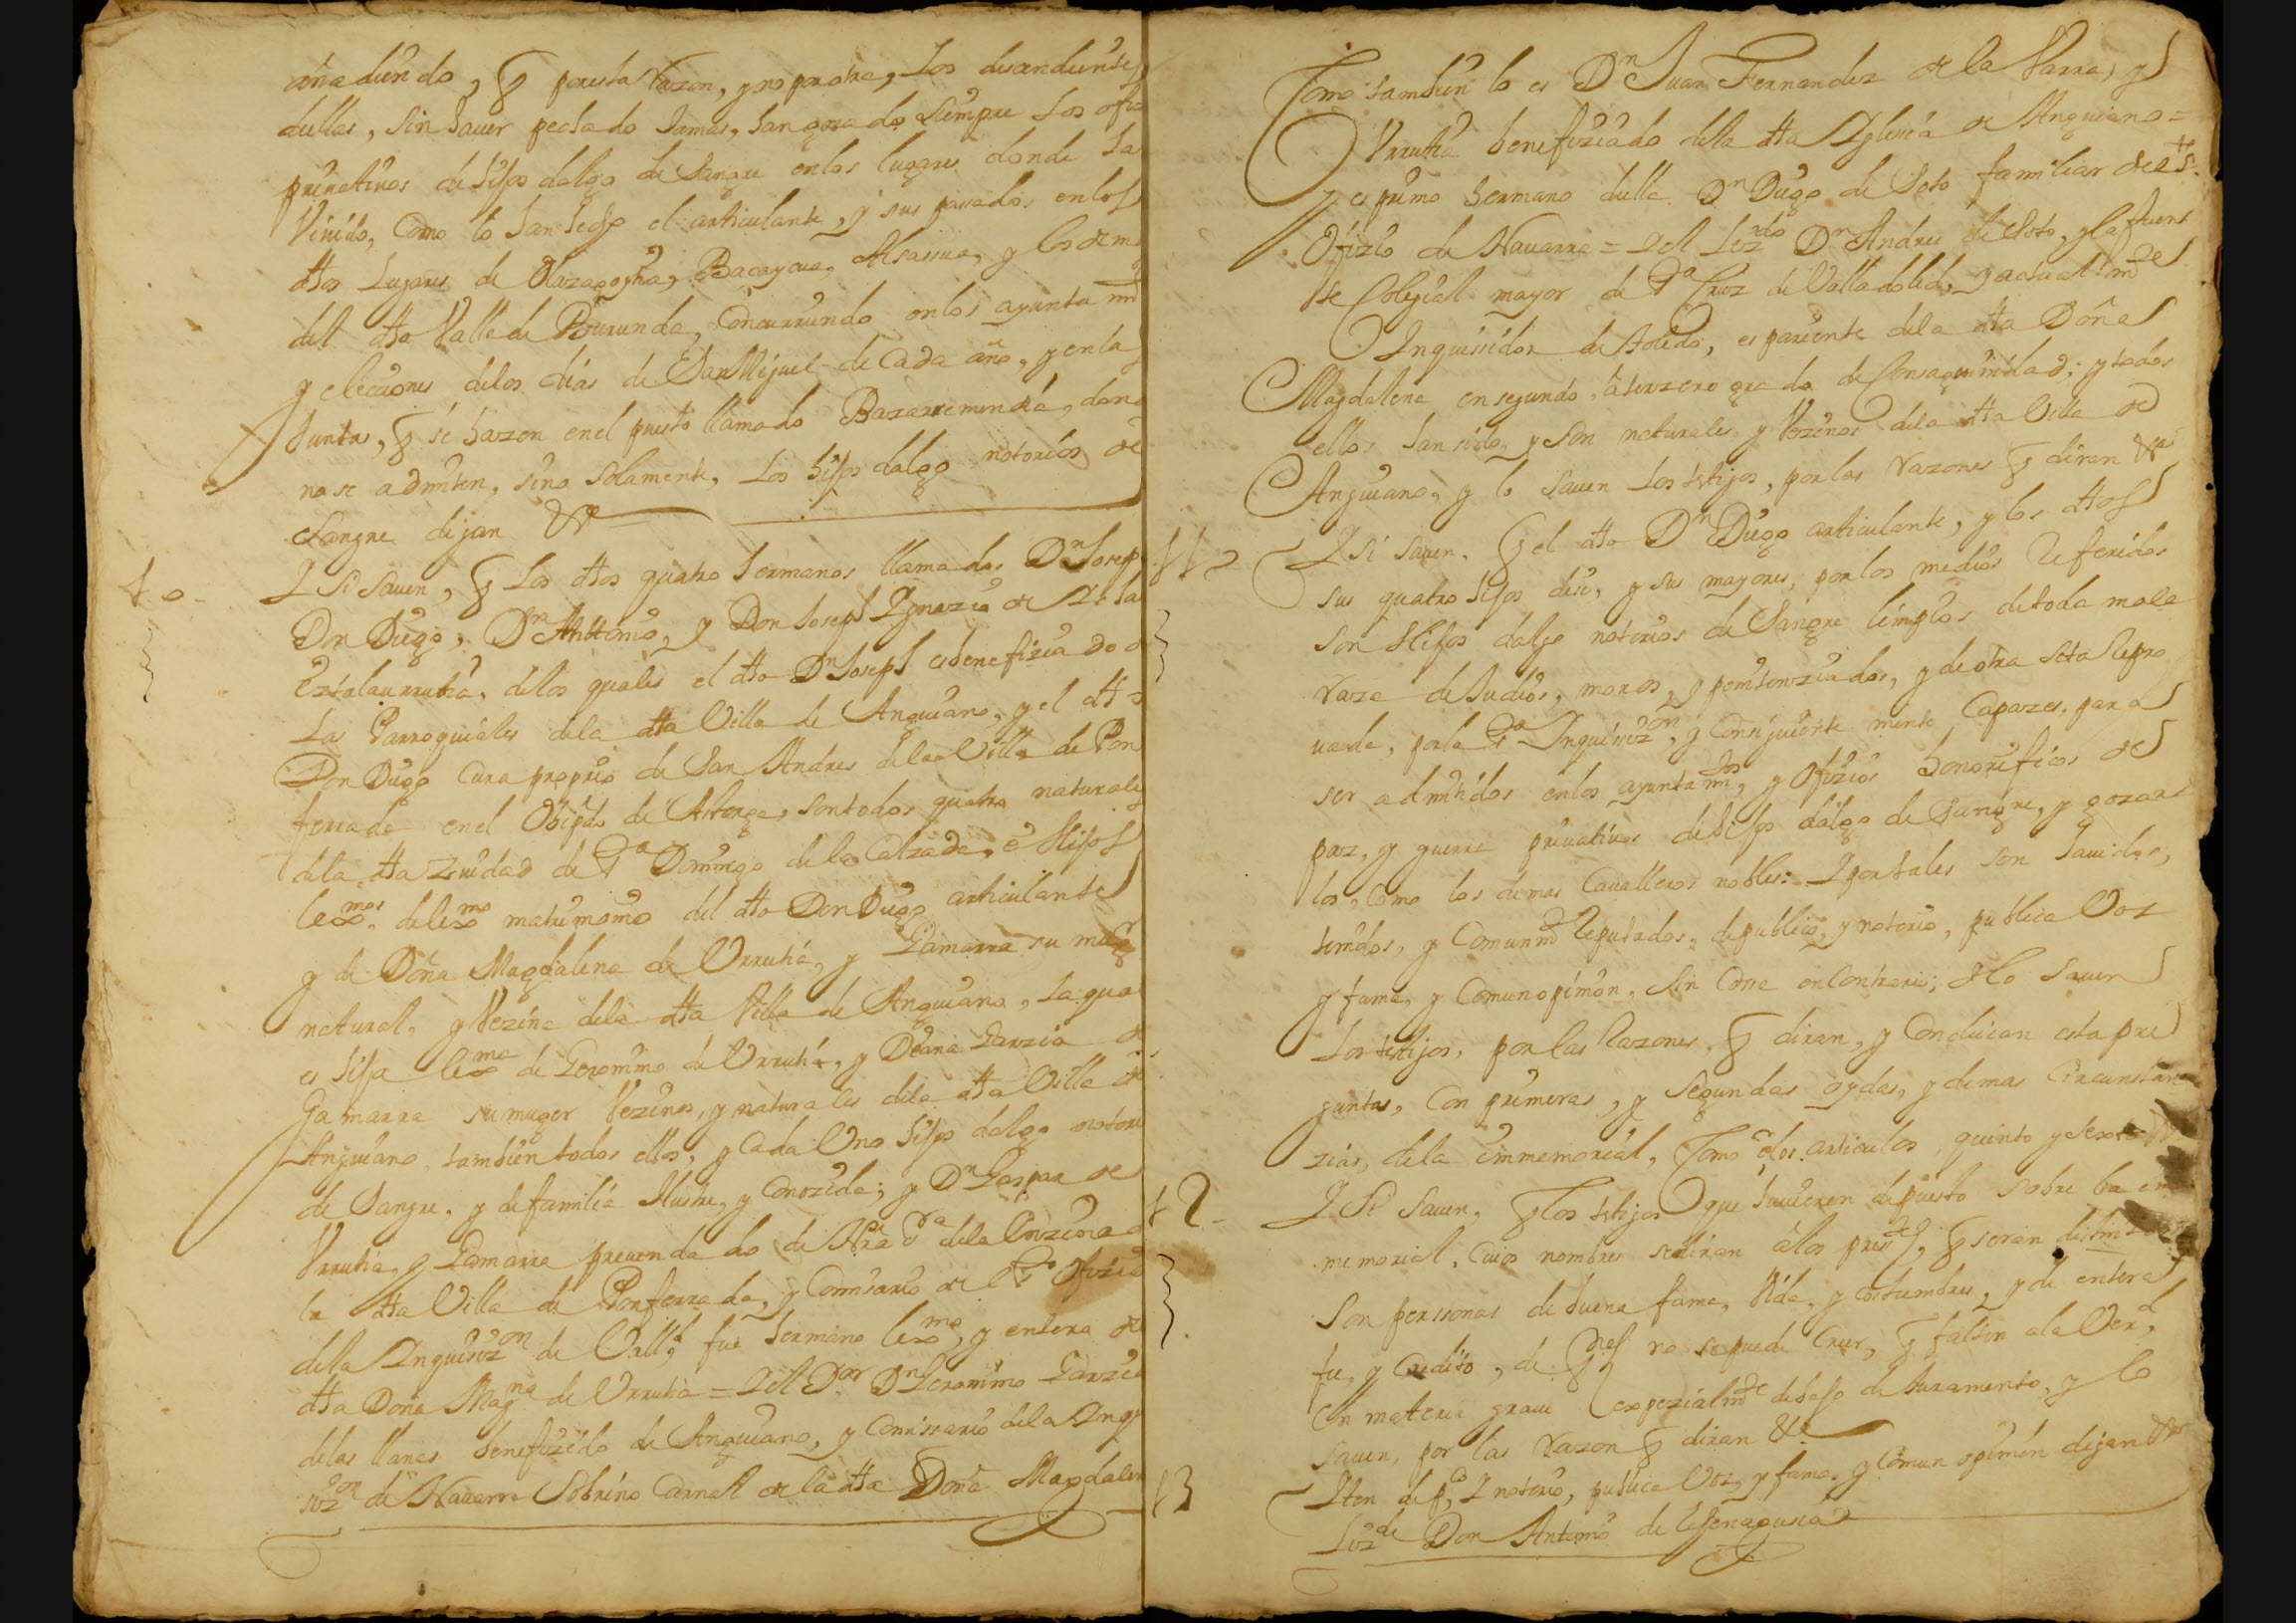 añadiendo, q̃ por esta razon, y no por otra, Los deszendientes
dellas, sin hauer pechado Jamas, han gozado siempre Los ofiz
priuatiuos de hijos dalgo de Sangre en los lugares donde ha
Viuido, Como lo han hecho el articulante, y sus passados en los
dhos Lugares de Olazagogtia, Bacaycua, Alsassua, y los dem
del dho Valle de Burunda, Concurriendo en los ayuntamtos
y elecciones de los dias de San Miguel de Cada año, y en la
Junta, q̃ se hazen en el puesto llamado Bazarremendia, don
no se admiten, sino Solamente, Los hijos dalgo notorios de
Sangre digan &a
10 -
Y Si Sauen, q̃ Los dhos quatro hermanos llamados Dn Joseph
Don Diego, Dn Anttonio, y Don Joseph Ygnazio de
Extalaurrutia, de los quales el dho Dn Joseph es benefiziado d
Las Parroquiales de la dha Villa de Anguiano, y el dho
Don Diego Cura proprio de San Andres de la Villa de Pon
ferrada en el Obispdo de Astorga, son todos quatro naturales
de la dha Ziudad de Sto Domingo de la Calzada, e Hijos
lexmos de lexmo matrimonio del dho Don Diego articulante
y de Doña Magdalena de Urrutia, y Gamarra su muger
natural, y Vezina de la dha Villa de Anguiano, La qua
es hija lexma de Geronimo de Urrutia, y Deana Garzia d
Gamarra su muger Vezinos, y naturales de la dha Villa d
Anguiano tambien todos ellos, y Cada Uno hijos dalgo notori
de Sangre, y de familia Ilustre, y Conozida; y Dn Gaspar de
Urrutia, y Gamarra preuendado de Nra Sra de la Enzina d
la dha Villa de Ponferrada, y Comisario de el Sto Ofizio
de la Inquisizon de Valld fue hermano lexmo, y entero de
dha Doña Magna de Urrutia = Y el Dor Dn Geronimo Garzia
de las llanas benefiziado de Anguiano, y Comissario de la Inqui
sizon de Nauarra Sobrino Carnal de la dha Doña Magdalen
Como tambien lo es Dn Juan Fernandez de la Varra, y
Urrutia benefiziado de la dha Yglesia de Anguiano =
y es primo hermano della Dn Diego de Soto familiar de el Sto
Ofizio de Nauarra = Y el Lizdo Dn Andres de Soto, y la fuent
Colegial mayor de Sta Cruz de Valladolid, y actualmte
Inquisidor de toledo, es pariente de la dha Doña
Magdalena en segundo, a terzero grado de Consaguinidad; y todos
ellos han sido, y son naturales, y Vezinos de la dha Villa de
Anguiano, y lo Sauen Los testigos, por las razones q̃ diran &a
11 -
Y Si Sauen, q̃ el dho Dn Diego articulante, y los dhos
sus quatro hijos dese, y sus mayores, por los medios referidos
son Hijos dalgo notorios de Sangre limpios de toda mala
raza de Judios, moros, y penitenziados, y de otra seta repro
uada, por la Sta Inquisizon, y Consiguientemente Capazes, para
ser admitidos en los ayuntamtos, y Ofizios honorificos de
paz, y guerra priuatiuos de hijos dalgo de Sangre, y gozar
los, Como los demas Caualleros nobles: Y por tales son hauidos,
tenidos, y Comunmte Reputados, de publico, y notorio, publica Voz
y fama, y Comun opinion, Sin Cossa en Contrario; y lo Sauen
Los testigos, por las Razones, q̃ diran, y Concluiran esta pre
gunta, Con primeras, y Segundas oydas, y demas Circunstan
zias, de la immemorial, Como e los articulos, quinto y Sexto
12 -
Y Si Sauen, q̃ Los testigos que huuieren depuesto sobre la im
memorial, Cuios nombres se diran a los pressttes, q̃ seran
Son perssonas de buena fama, Vida, y Costumbres, y de entera
fe, y Credito, de q̃nes no se puede Creer, q̃ falten a la Verd,
en materia graue expezialmte debajo de Juramento, y lo
Sauen, por las razon q̃ diran &a
13
Yten de pco, Y notorio, publica Voz, y fama, y Comun opinion digan &a
Lizdo Don Antonio de